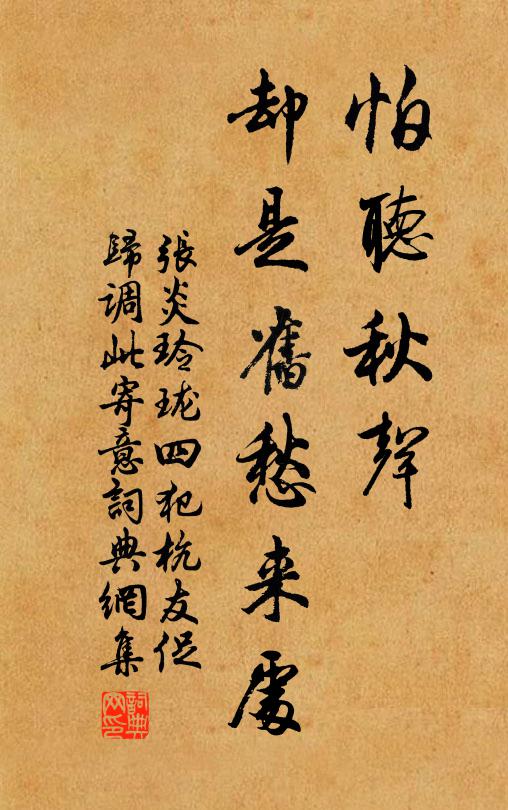 怕聽秋聲
却是舊愁来處
張炎玲珑四犯杭友促
歸调此寄意詞典網集
詞典
网印